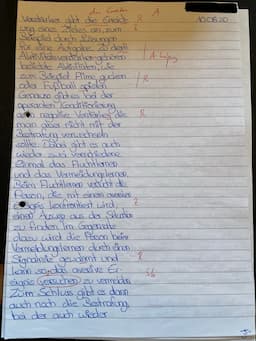 Verstärker gibt die Erreich
ung eines Zieles an, zum
Beispiel durch Lösungen
für eine Aufgabe. Zu den
Aktivitätsverstärker gehören
beliebte Aktivitäten, wie
zum Beispiel Filme gucken
oder Fußball spielen
Genauso gibt es bei der
operanten Konditionierung
negative Verstärker, die
man aber nicht mit der
Bestrafung verwechseln
sollte. Dabei gibt es auch
wieder zwei verschiedene
Einmal das Fluchtlernen
und das Vermeidungslernen.
Beim Fluchtlernen versucht die
Person, die mit einem aversiven
konfrontiert wird,
einen Ausweg aus der Situation
zu finden. Im Gegensatz
dazu wird die Person beim
Vermeidungslernen durch einen
Signalreiz gewarnt und
kann so, das aversive Er-
eignis versuchen zu vermeiden
Zum Schluss gibt es dann
auch noch die Bestrafung,
bei der auch wieder
10.06.20
R
A
R